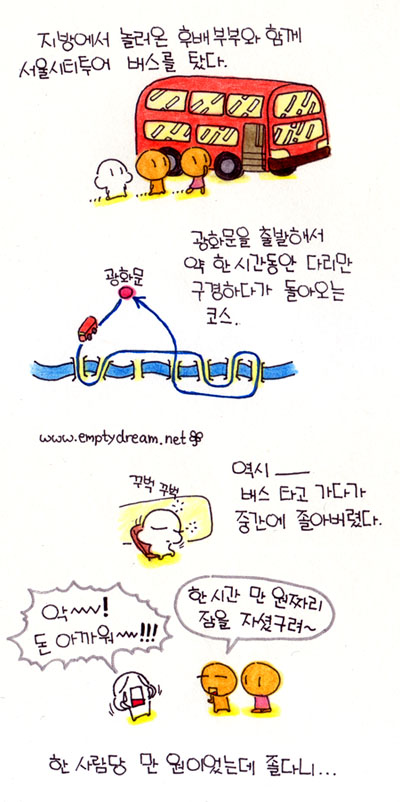 지방에서 놀러온 후배부부와 함께
서울시티투어 버스를 탔다.
광화문을 출발해서
약 한시간동안 다리만
구경하다가 돌아오는
코스.
광화문
www.emptydream.net
역시 ——
버스 타고 가다가
중간에 졸아버렸다.
꾸벅 꾸벅
악~~!
돈 아까워~~!!!
한시간 만 원짜리
잠을 자셨구려~
한 사람당 만 원이었는데 졸다니...